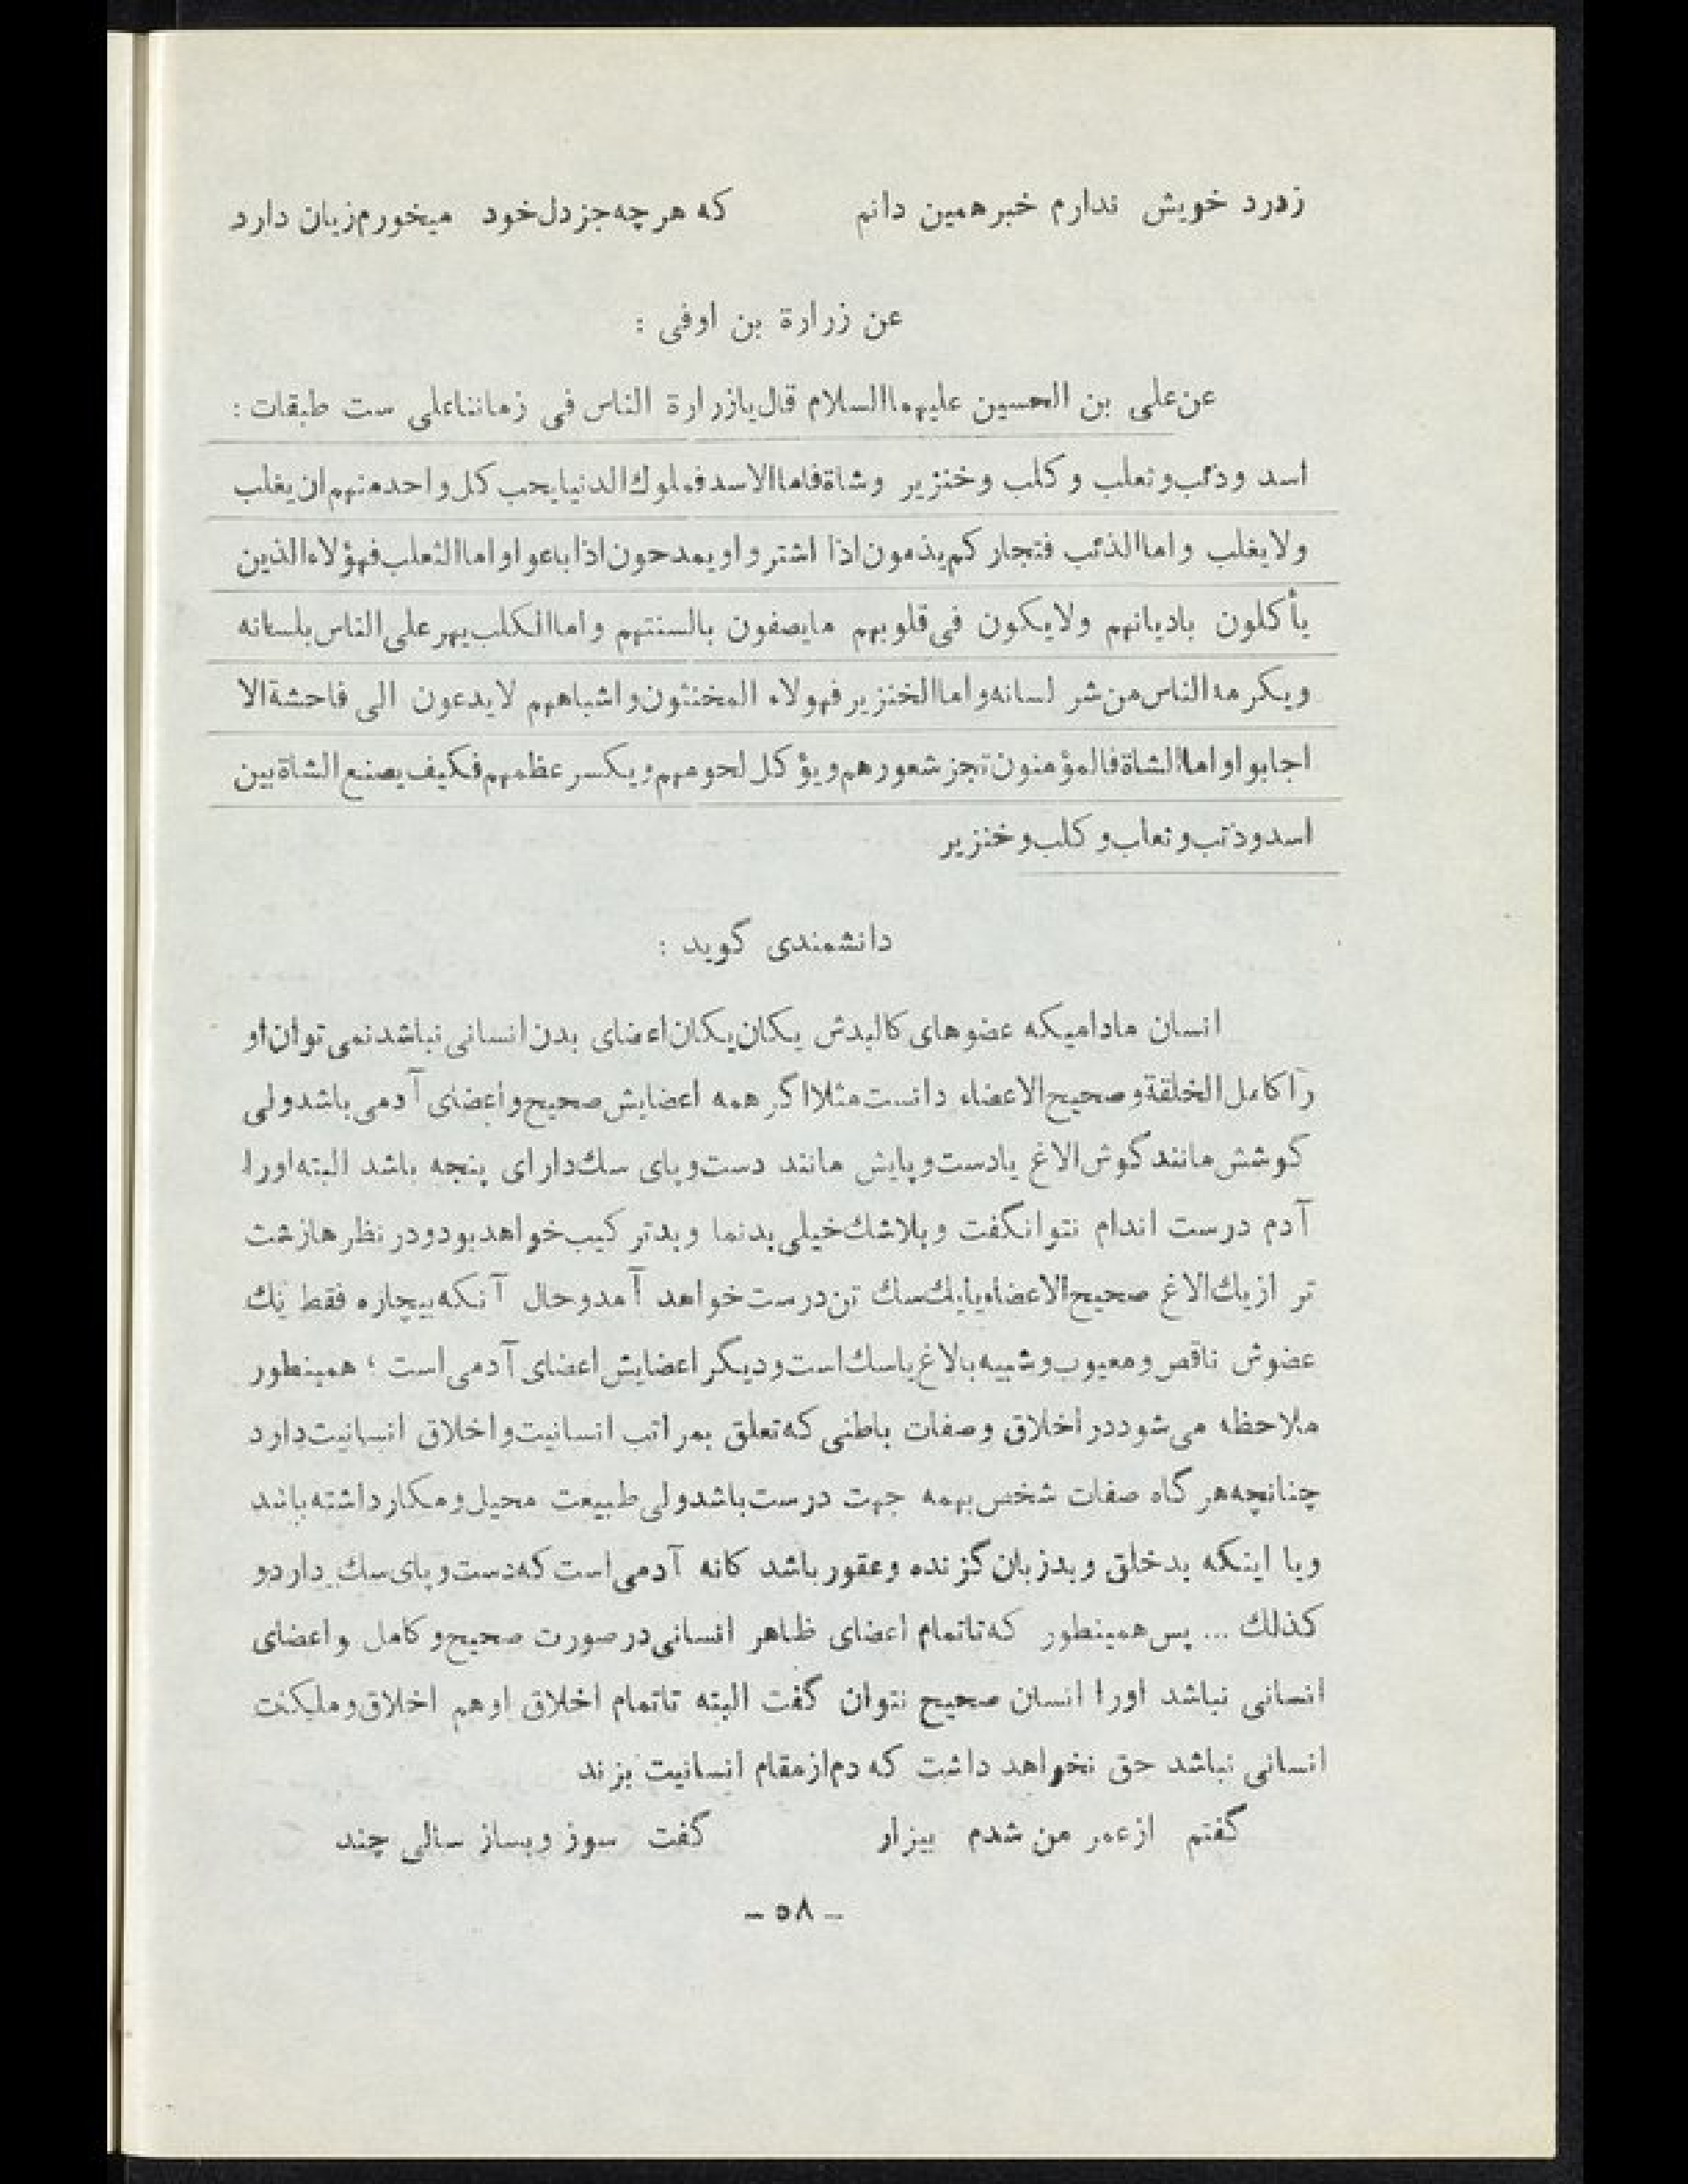 زدرد خویش ندارم خبر همین دانم که هر چه جز دل خود میخورم زیان دارد
عن زرارة بن اوفی :
عن علی بن الحسین علیهما السلام قال یا زرارة الناس فی زماننا علی ست طبقات :
اسد و ذئب و ثعلب و كلب و خنزیر و شاة فاما الاسد فملوك الدنیا یحب كل واحد منهم ان یغلب
ولا یغلب و اما الذئب فتجاركم یذمون اذا اشتروا و یمدحون اذا باعوا و اما الثعلب فهؤلاء الذین
یأكلون بادیانهم ولا یكون فی قلوبهم ما یصفون بالسنتهم و اما الكلب یهر علی الناس بلسانه
و یكرمه الناس من شر لسانه و اما الخنزیر فهولاء المخنثون و اشباههم لا یدعون الی فاحشة الا
اجابوا و اما الشاة فالمؤمنون تجز شعورهم و یؤكل لحومهم و یكسر عظمهم فكیف یصنع الشاة بین
اسد و ذئب و ثعلب و كلب و خنزیر
دانشمندی گوید :
انسان مادامیکه عضوهای کالبدش یکان یکان اعضای بدن انسانی نباشد نمی توان او
را کامل الخلقة و صحیح الاعضاء دانست مثلا اگر همه اعضایش صحیح و اعضای آدمی باشد ولی
گوشش مانند گوش الاغ یا دست و پایش مانند دست و پای سك دارای پنجه باشد البته او را
آدم درست اندام نتوانگفت و بلاشك خیلی بدنما و بدترکیب خواهد بود و در نظرها زشت
تر از یك الاغ صحیح الاعضاء یا یك سك تن درست خواهد آمد و حال آنکه بیچاره فقط یك
عضوش ناقص و معیوب و شبیه بالاغ یا سك است و دیگر اعضایش اعضای آدمی است ؛ همینطور
ملاحظه می شود در اخلاق و صفات باطنی که تعلق بمراتب انسانیت و اخلاق انسانیت دارد
چنانچه هر گاه صفات شخص بهمه جهت درست باشد ولی طبیعت محیل و مکار داشته باشد
و یا اینکه بدخلق و بدزبان گزنده و عقور باشد کانه آدمی است که دست و پای سك دارد و
کذلك ... پس همینطور که تا تمام اعضای ظاهر انسانی در صورت صحیح و کامل و اعضای
انسانی نباشد او را انسان صحیح نتوان گفت البته تا تمام اخلاق او هم اخلاق و ملیکنت
انسانی نباشد حق نخواهد داشت که دم از مقام انسانیت بزند
گفتم از عمر من شدم بیزار گفت سوز و بساز سالی چند
– ۵۸ –